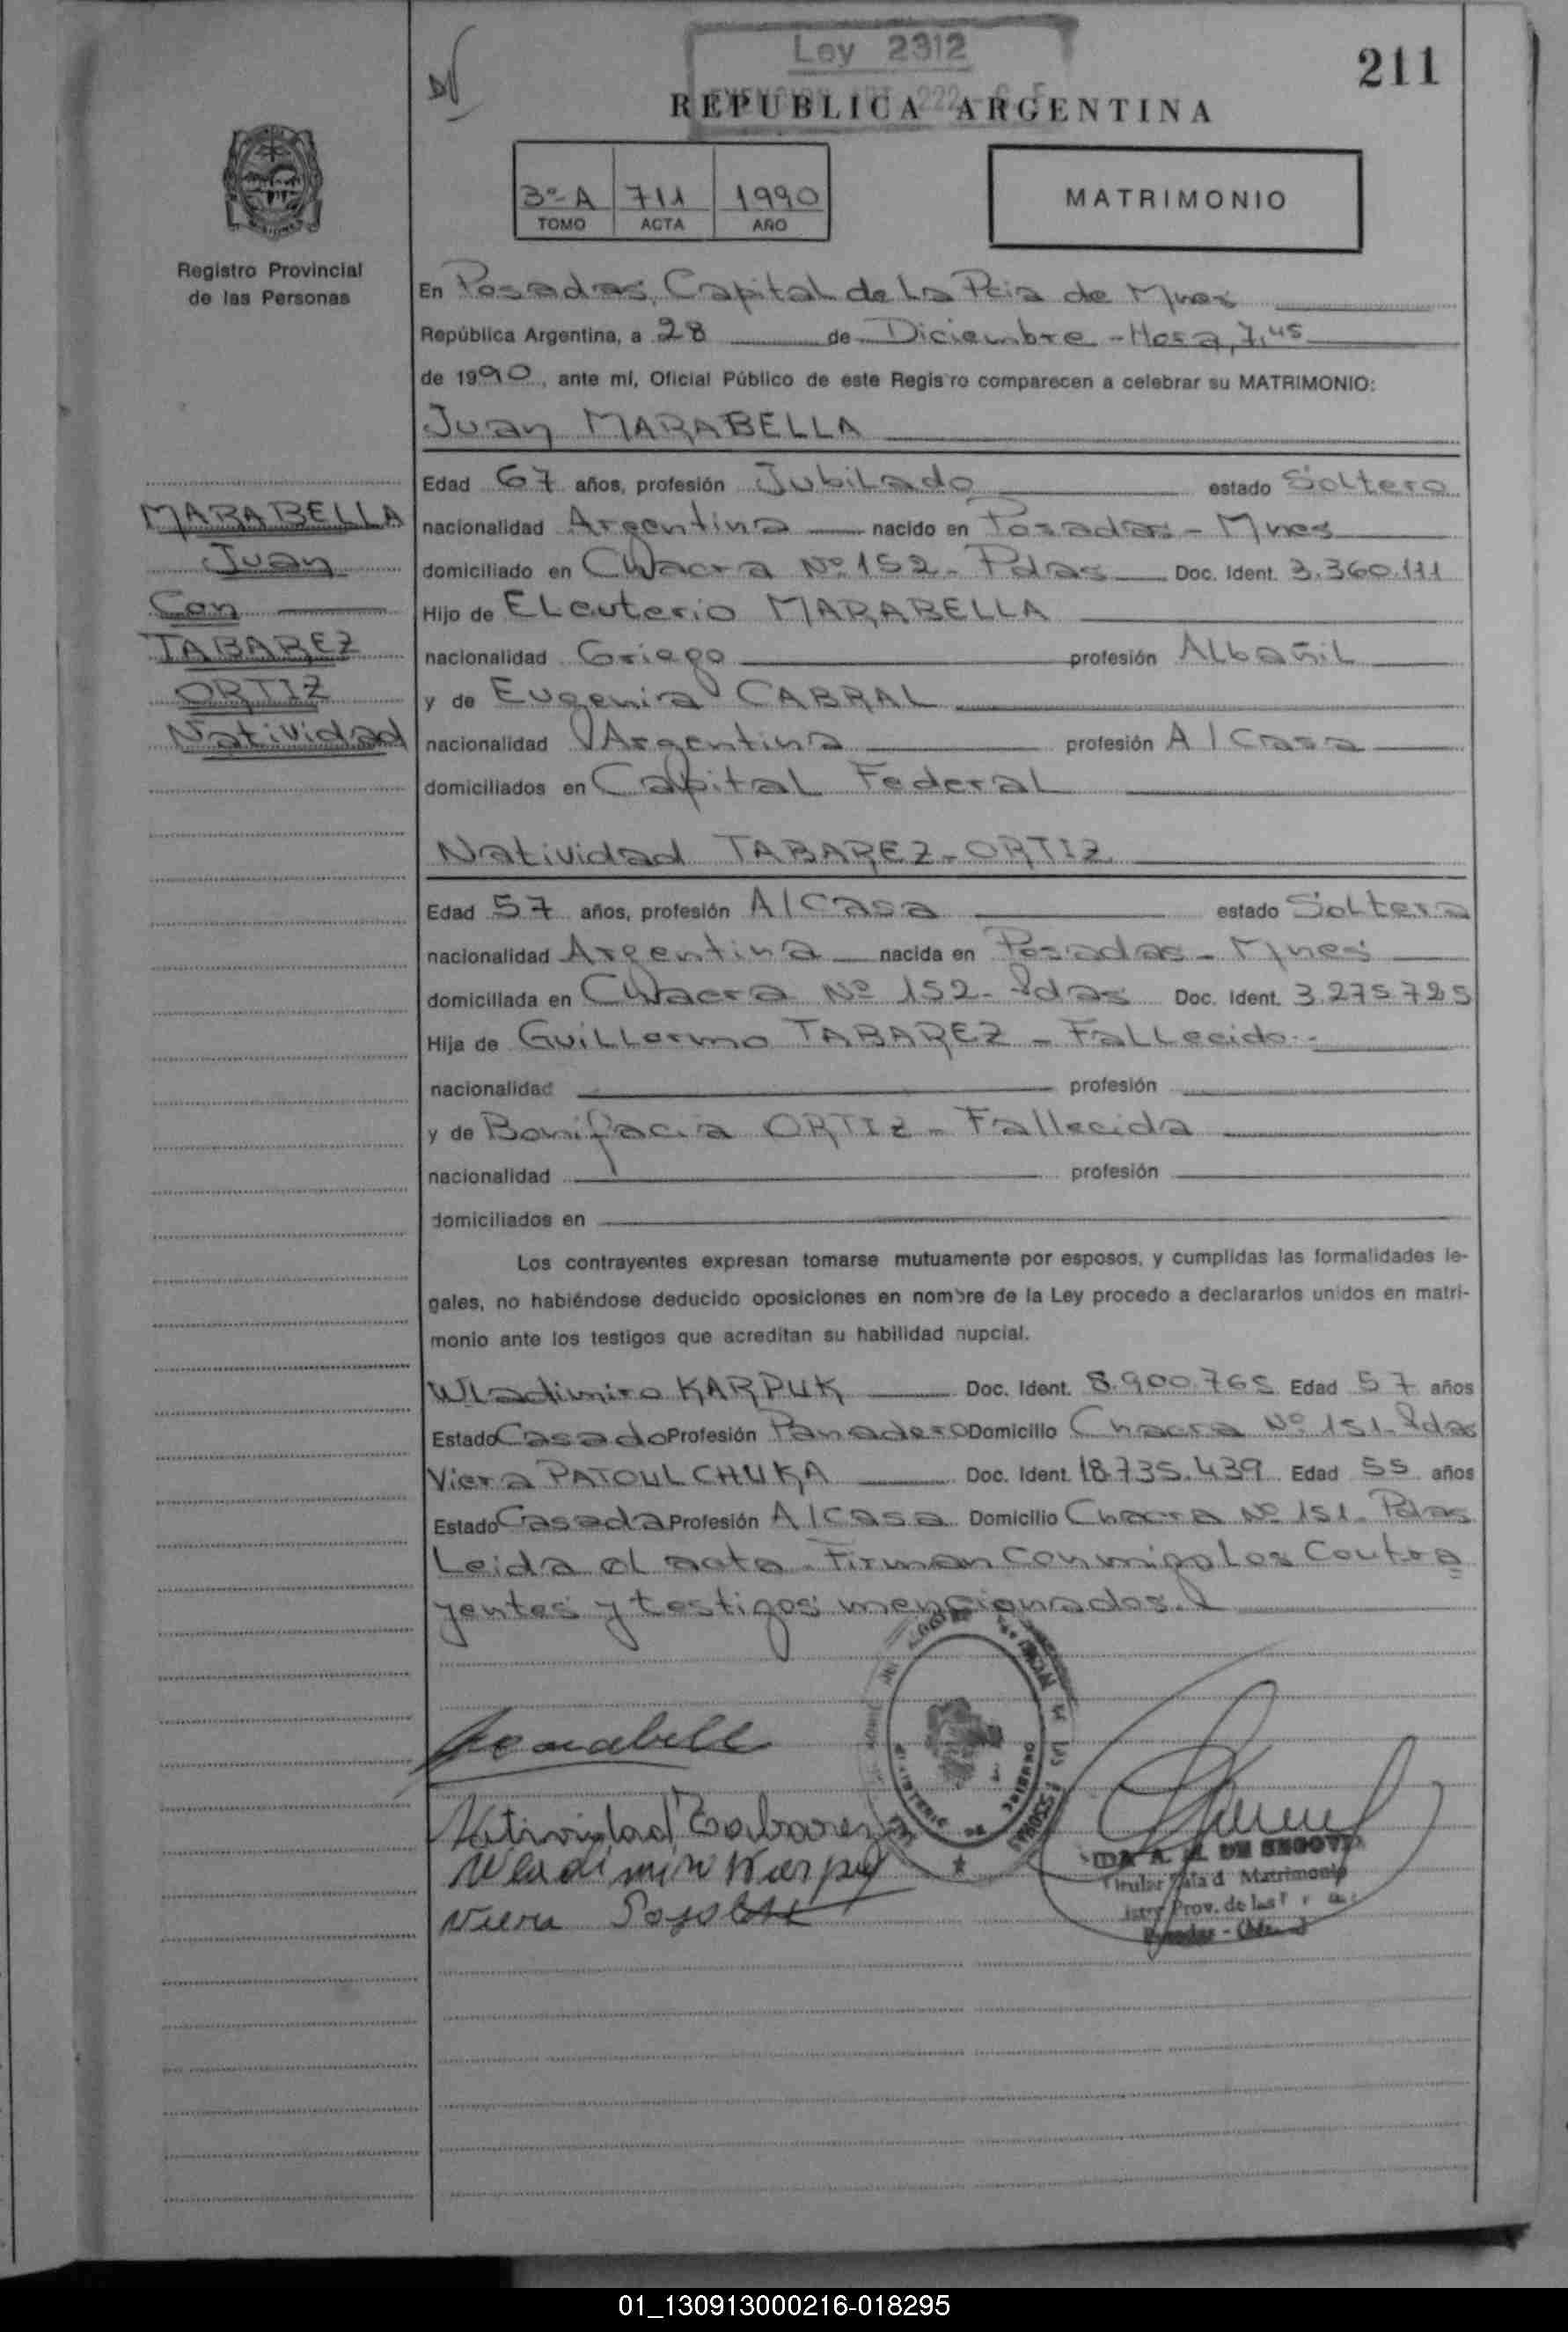 Ley 2312
211
REPUBLICA ARGENTINA
3º A 711 1990
TOMO ACTA AÑO
MATRIMONIO
Registro Provincial
de las Personas
MARABELLA
Juan
Con
TABAREZ
ORTIZ
Natividad
En Posadas, Capital de La Pcia de Mnes
República Argentina, a 28 de Diciembre - Hora, 7,45
de 1990, ante mí, Oficial Público de este Registro comparecen a celebrar su MATRIMONIO:
Juan MARABELLA
Edad 67 años, profesión Jubilado estado Soltero
nacionalidad Argentina nacido en Posadas - Mnes
domiciliado en Chacra Nº 152 - Pdas Doc. Ident. 3.360.111
Hijo de Eleuterio MARABELLA
nacionalidad Griego profesión Albañil
y de Eugenia CABRAL
nacionalidad Argentina profesión A/Casa
domiciliados en Capital Federal
Natividad TABAREZ - ORTIZ
Edad 57 años, profesión A/Casa estado Soltera
nacionalidad Argentina nacida en Posadas - Mnes
domiciliada en Chacra Nº 152 - Pdas Doc. Ident. 3.275.725
Hija de Guillermo TABAREZ - Fallecido -
nacionalidad profesión
y de Bonifacia ORTIZ - Fallecida
nacionalidad profesión
domiciliados en
Los contrayentes expresan tomarse mutuamente por esposos, y cumplidas las formalidades le-
gales, no habiéndose deducido oposiciones en nombre de la Ley procedo a declararlos unidos en matri-
monio ante los testigos que acreditan su habilidad nupcial.
Wladimiro KARPUK Doc. Ident. 8.900.765 Edad 57 años
Estado Casado Profesión Panadero Domicilio Chacra Nº 151 - Pdas
Viera PATOULCHUKA Doc. Ident. 18.735.439 Edad 55 años
Estado Casada Profesión A/Casa Domicilio Chacra Nº 151 - Pdas
Leida el acta - Firman conmigo Los Contra
yentes y testigos mencionados.
Natividad Tabarez
Wladimiro Karpuk
Viera
DE SEGOVIA
Titular Sala d Matrimonio
Prov. de las
01_130913000216-018295